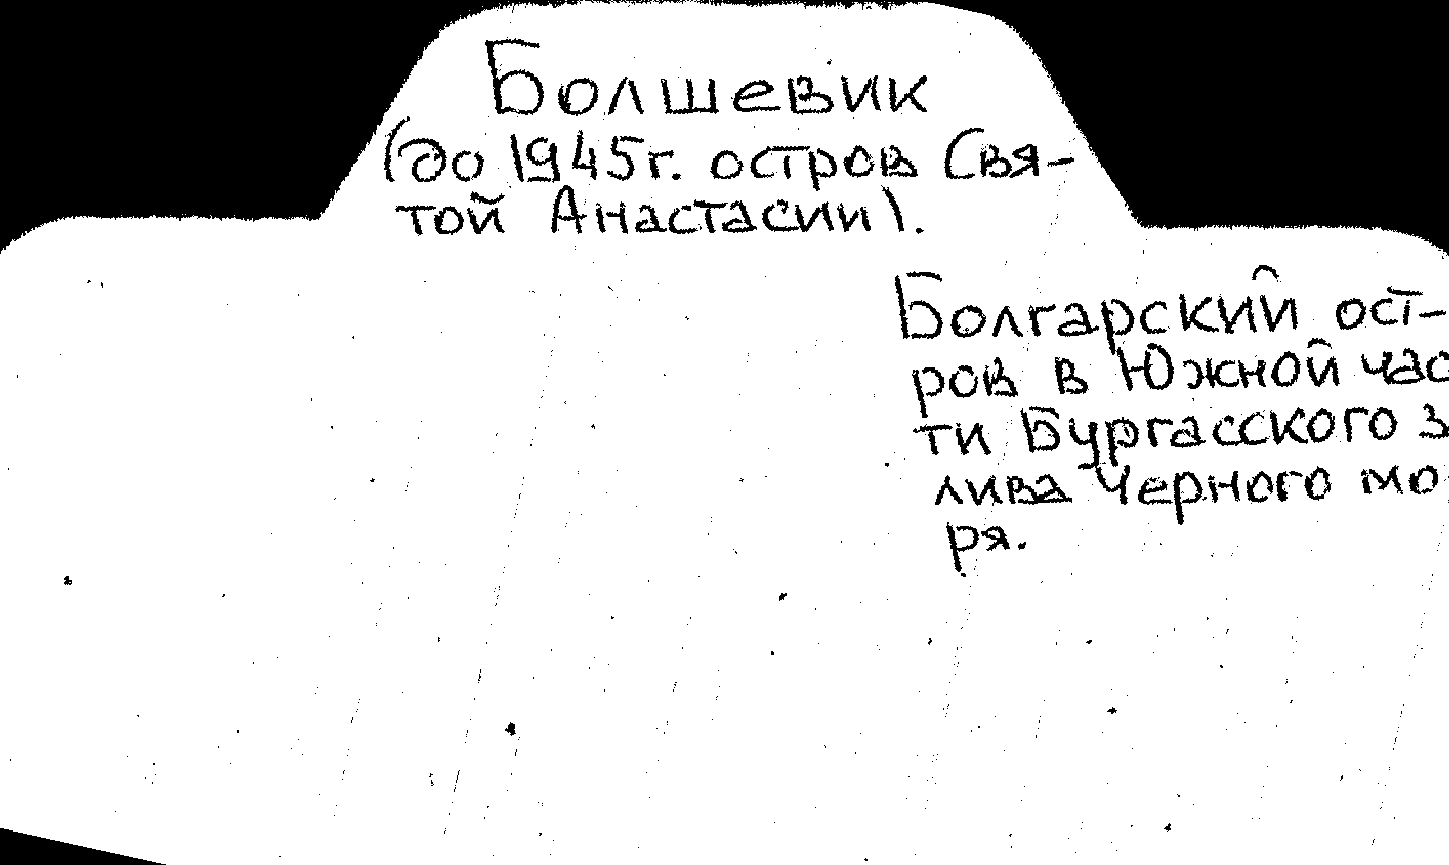 Болшевик
(до 1945г. остров Свя-
той Анастасии).
Болгарский ост-
ров в Южной час
ти Бургасского з
лива Черного мо
ря.